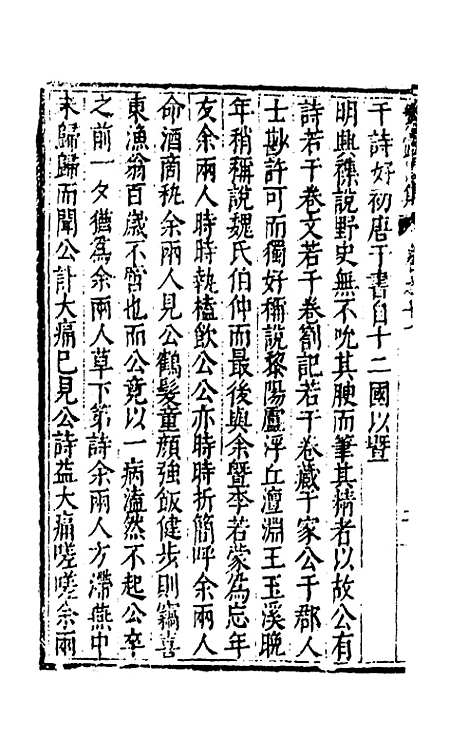 于詩好初唐于書自十二國以暨
明興襍說野史無不吮其腴而筆其精者以故公有
詩若干卷文若干卷劄記若干卷藏于家公于郡人
士尠許可而獨好稱說黎陽盧浮丘澶淵王玉溪晩
年稍稱說魏氏伯仲而最後與余暨李若蒙為忘年
友余兩人時時執榼飲公公亦時時折簡呼余兩人
命酒商秇余兩人見公鶴髮童顔強飯健步則竊喜
東漁翁百歲不啻也而公竟以一病溘然不起公卒
之前一夕猶為余兩人草下第詩余兩人方滯燕中
未歸歸而聞公訃大痛已見公詩益大痛嗟嗟余兩